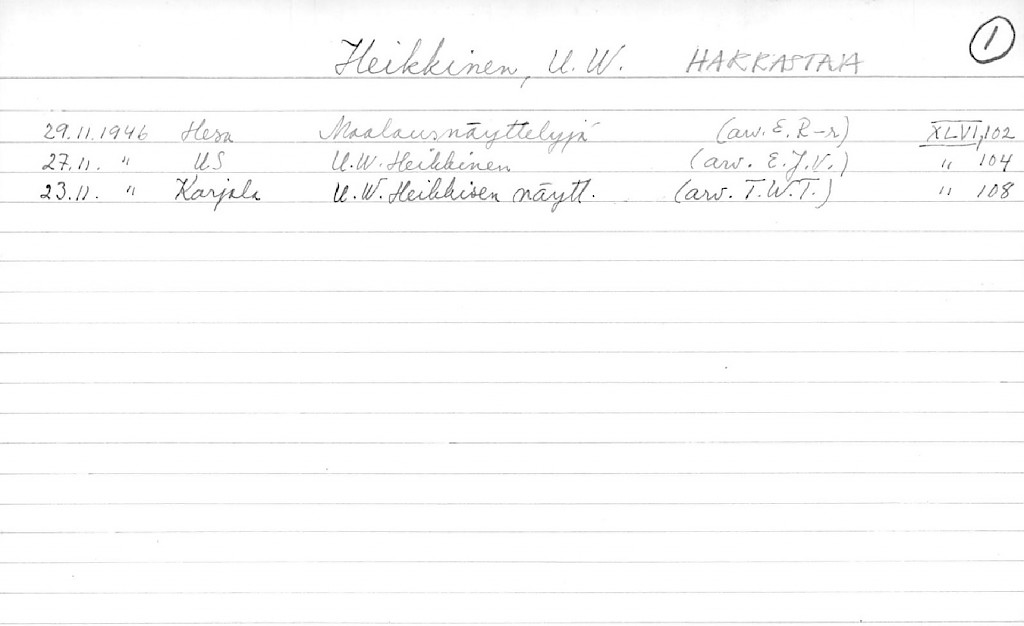 Heikkinen, U. W. HARRASTAJA 1
29.11.1946 Hesa Maalausnäyttelyjä (arv. E. R-r) XLVI, 102
27.11. " US U.W. Heikkinen (arv. E.J.V.) " 104
23.11. " Karjala U.W. Heikkisen näytt. (arv. T.W.T.) " 108